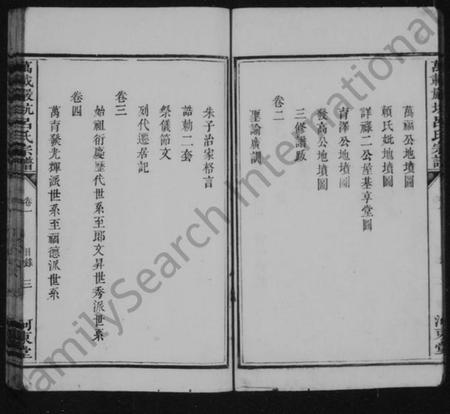 萬福公地墳圖
賴氏妣地墳圖
詳祿二公屋基享堂圖
育澤公地墳圖
發高公地墳圖
三修譜跋
卷二
聖諭廣訓
朱子治家格言
誥勅二套
祭儀節文
列代遷居記
卷三
始祖衍慶歷代世系至郎文昇世秀派世系
卷四
萬育變光輝派世系至福德派世系
呂氏宗譜
卷一
目錄
三
河東堂
FamilySearch International